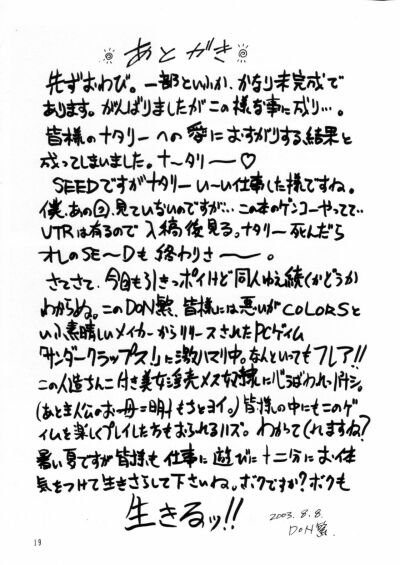 あとがき
先ずおわび。一部といふか、かなり未完成で
あります。がんばりましたがこの様な事に成り…。
皆様のナタリーへの愛におすがりする結果と
成ってしまいました。ナ〜タリ〜♡
SEEDですがナタリーい〜い仕事した様ですね。
僕、あの②、見ていないのですが…この本のゲンコーやってて…
VTRは有るので入稿後見る。ナタリー死んだら
オレのSE〜Dも終わりさ〜。
さてさて、今回も引きっポイけど同人ゆえ続くかどうか
わからぬ。このDON繁、皆様には悪いがCOLORSと
いふ素晴しいメイカーからリリースされたPCゲイム
「サンダークラップス!」に激ハマリ中。なんといってもフレア!!
この人造ちんこ付き美女
(あと主人公のお母=明もちとヨイ。)皆様の中にもこのゲ
イムを楽しくプレイした方もおられるハズ。わかってくれますね?
暑い夏ですが皆様も仕事に遊びに十二分にお体
気をつけて生きさらして下さいね。ボクですか?ボクも
生きるッ!!
2003.8.8.
DON繁
19